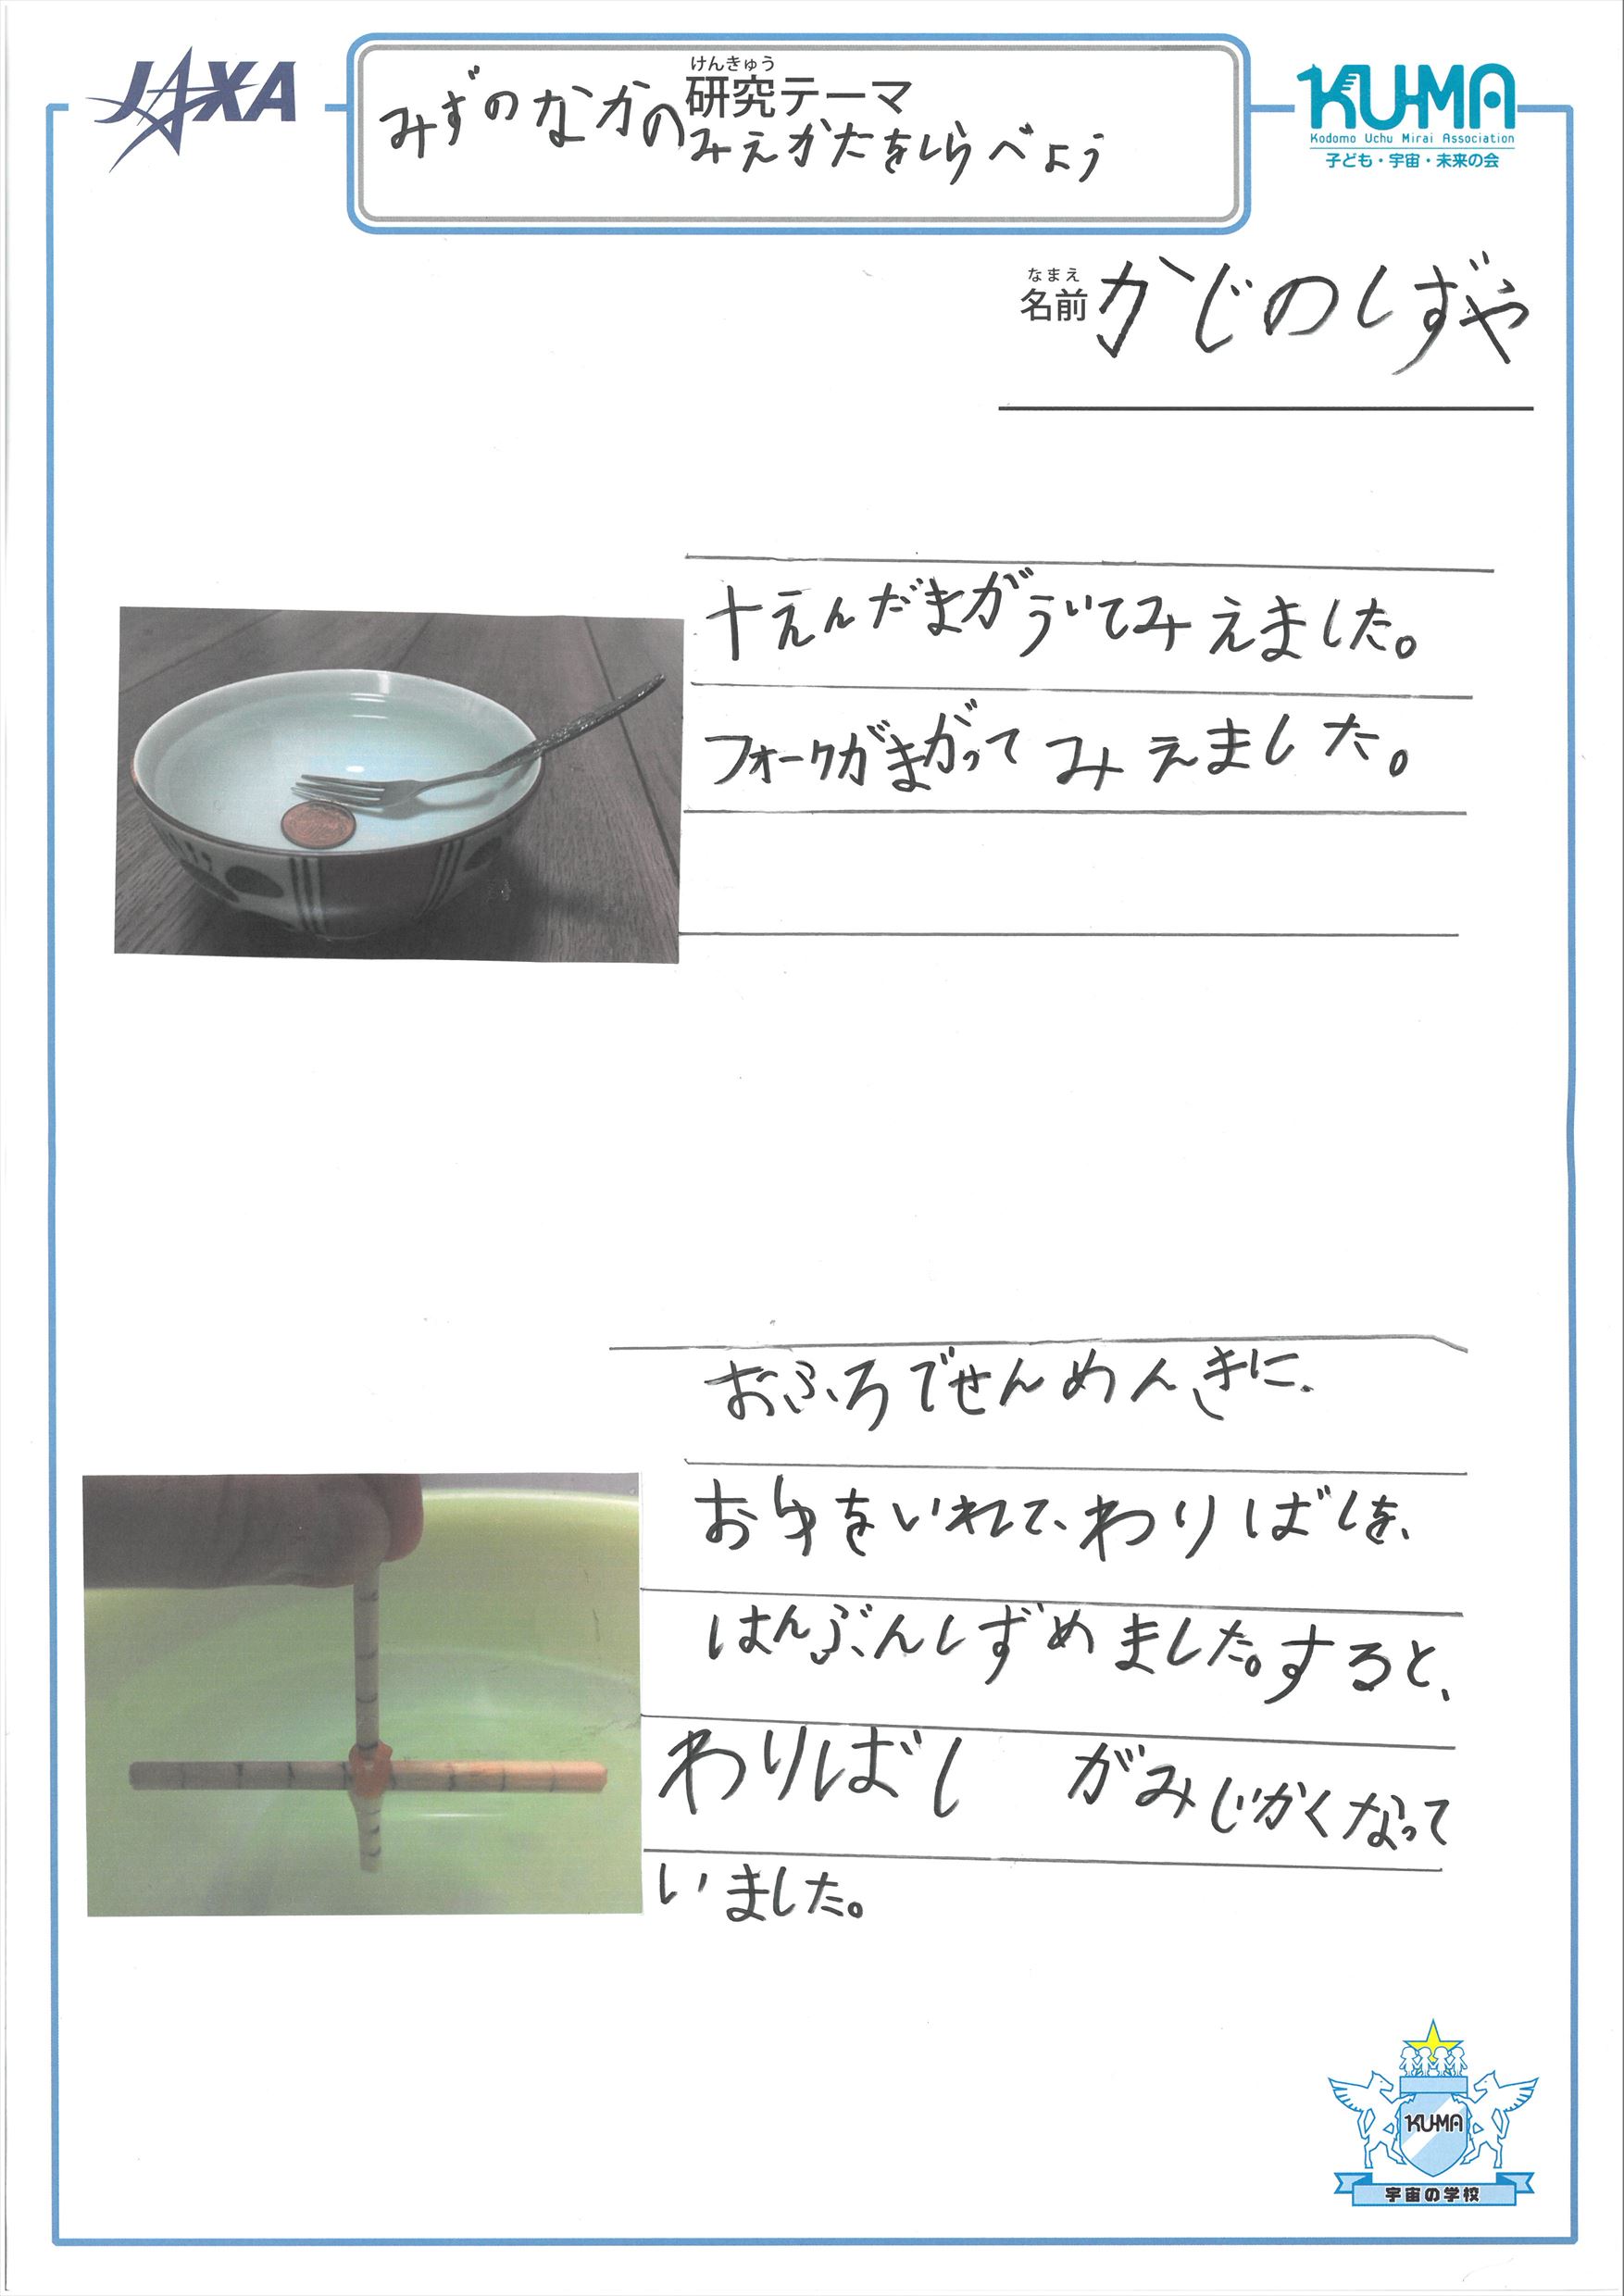 JAXA
けんきゅう
研究テーマ
みずのなかのみえかたをしらべよう
KU-MA
Kodomo Uchu Mirai Association
子ども・宇宙・未来の会
なまえ
名前 かじのしずや
十えんだまがういてみえました。
フォークがまがってみえました。
おふろでせんめんきに、
おゆをいれて、わりばしを、
はんぶんしずめました。すると、
わりばし がみじかくなって
いました。
KU-MA
宇宙の学校